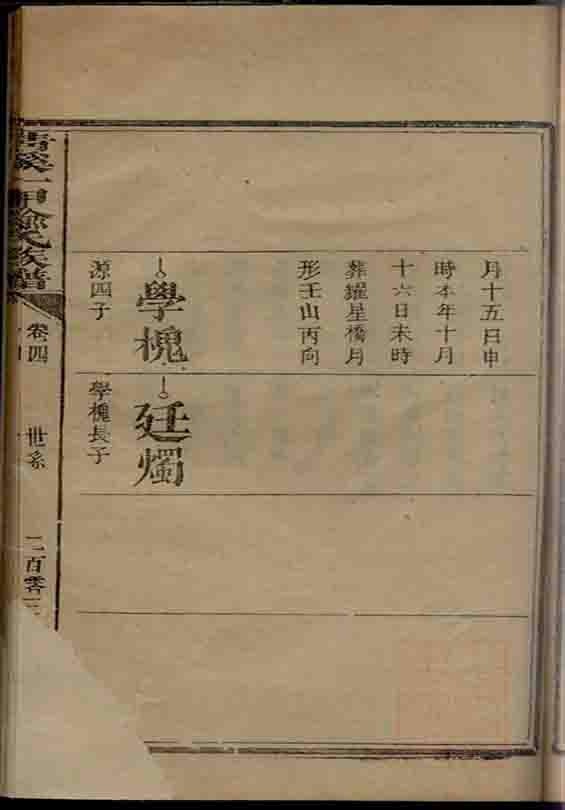 月十五日申
時本年十月
十六日未時
葬耀星橋月
形壬山丙向
學槐
源四子
廷燭
學槐長子
一甲
氏族譜
卷四
世系
二百零三